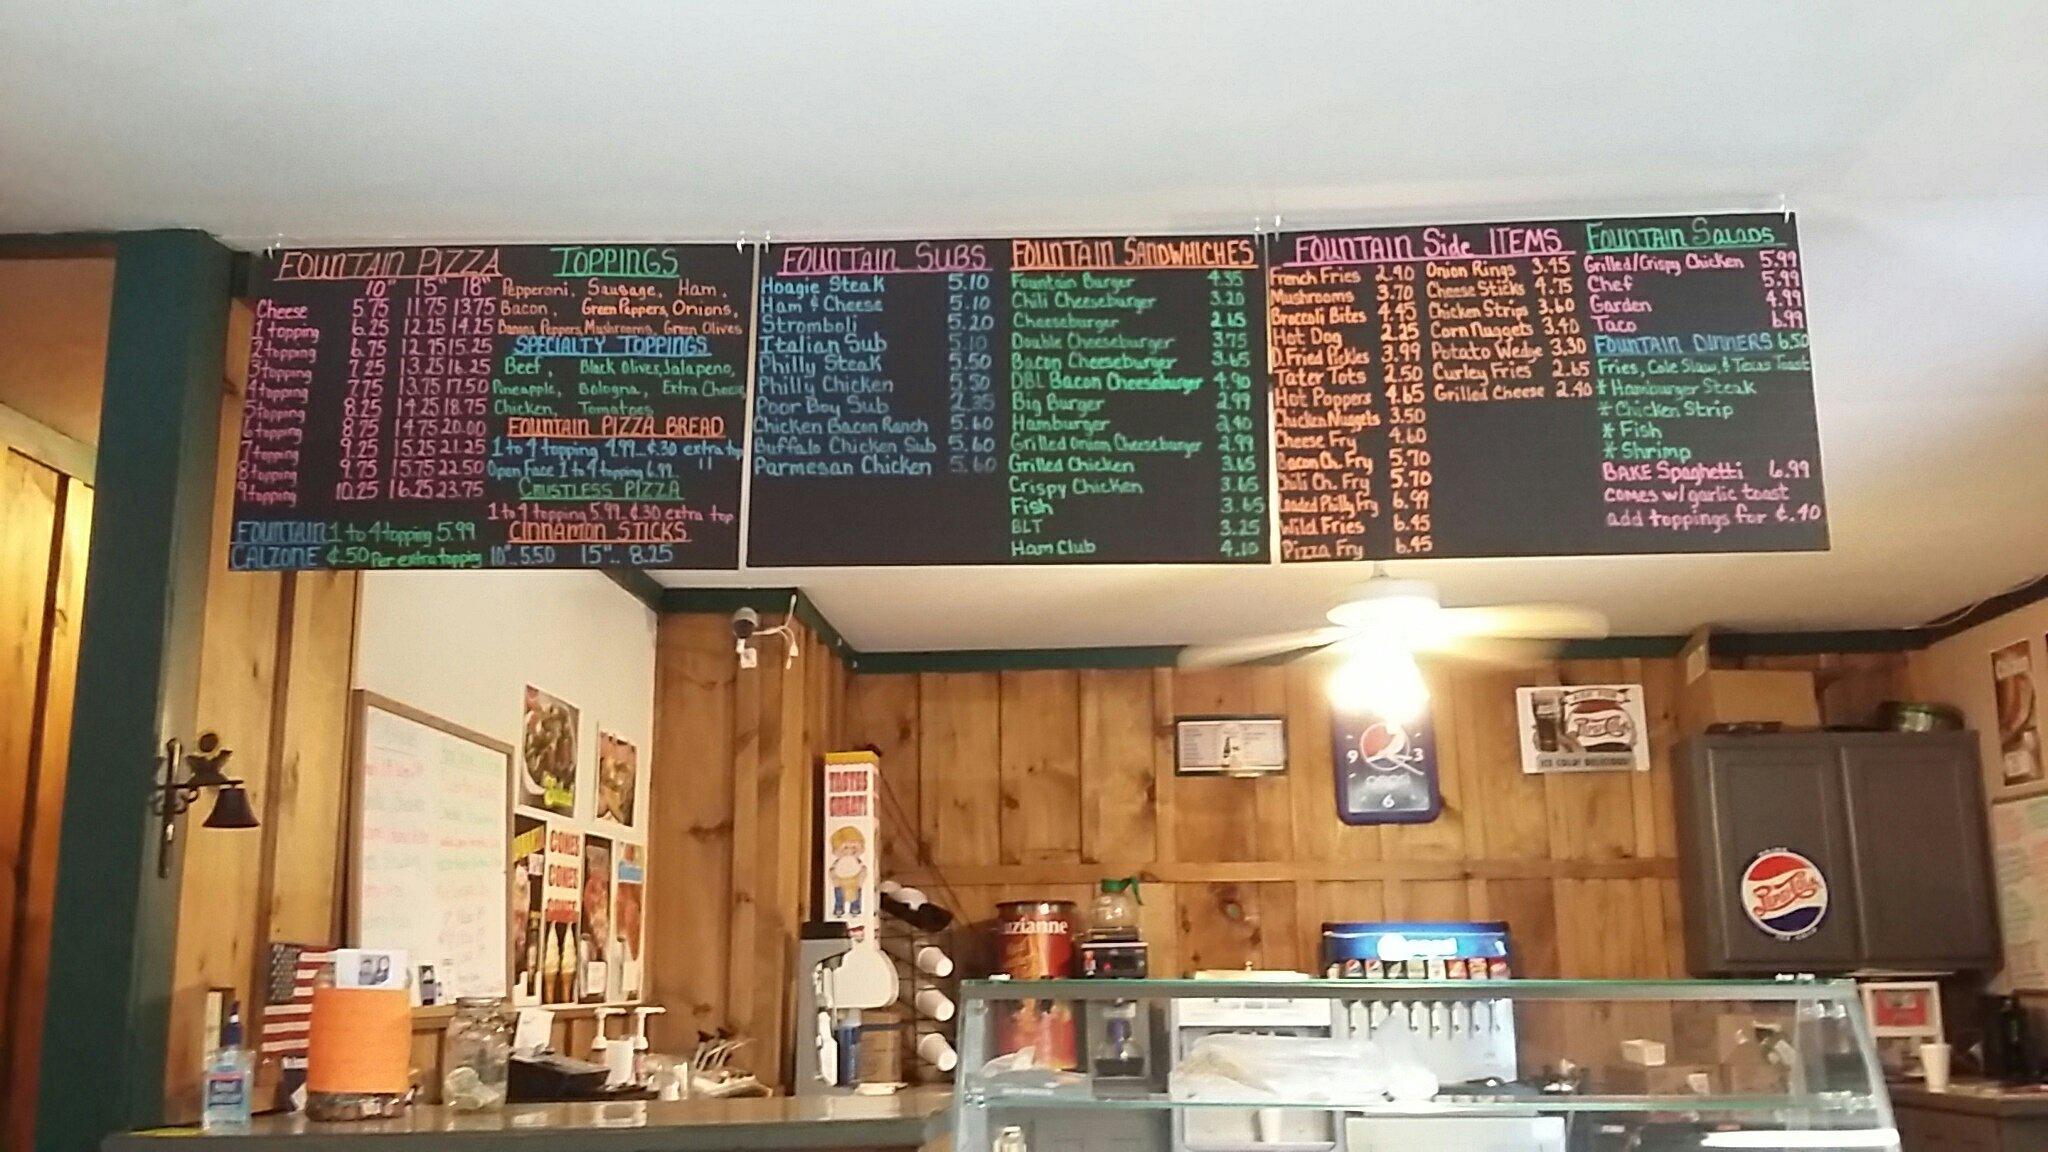 FOUNTAIN PIZZA
10" 15" 18"
Cheese 5.75 11.75 13.75
1 topping 6.25 12.25 14.25
2 topping 6.75 12.75 15.25
3 topping 7.25 13.25 16.25
4 topping 7.75 13.75 17.50
5 topping 8.25 14.25 18.75
6 topping 8.75 14.75 20.00
7 topping 9.25 15.25 21.25
8 topping 9.75 15.75 22.50
9 topping 10.25 16.25 23.75
FOUNTAIN 1 to 4 topping 5.99
CALZONE ¢.50 Per extra topping
TOPPINGS
Pepperoni, Sausage, Ham,
Bacon, Green Peppers, Onions,
Banana Peppers, Mushrooms, Green Olives
SPECIALTY TOPPINGS
Beef, Black Olives, Jalapeno,
Pineapple, Bologna, Extra Cheese
Chicken, Tomatoes
FOUNTAIN PIZZA BREAD
1 to 4 topping 4.99 ¢.30 extra top
Open Face 1 to 4 topping 6.99 "
CRUSTLESS PIZZA
1 to 4 topping 5.99 ¢.30 extra top
CINNAMON STICKS
10".. 5.50 15".. 8.25
FOUNTAIN SUBS
Hoagie Steak 5.10
Ham & Cheese 5.10
Stromboli 5.20
Italian Sub 5.10
Philly Steak 5.50
Philly Chicken 5.50
Poor Boy Sub 2.35
Chicken Bacon Ranch 5.60
Buffalo Chicken Sub 5.60
Parmesan Chicken 5.60
FOUNTAIN SANDWHICHES
Fountain Burger 4.35
Chili Cheeseburger 3.20
Cheeseburger 2.65
Double Cheeseburger 3.75
Bacon Cheeseburger 3.65
DBL Bacon Cheeseburger 4.90
Big Burger 2.99
Hamburger 2.40
Grilled Onion Cheeseburger 2.99
Grilled Chicken 3.65
Crispy Chicken 3.65
Fish 3.65
BLT 3.25
Ham Club 4.10
FOUNTAIN Side ITEMS
French Fries 2.40
Mushrooms 3.70
Broccoli Bites 4.45
Hot Dog 2.25
D.Fried Pickles 3.99
Tater Tots 2.50
Hot Poppers 4.65
Chicken Nuggets 3.50
Cheese Fry 4.60
Bacon Ch. Fry 5.70
Chili Ch. Fry 5.70
Loaded Philly Fry 6.99
Wild Fries 6.45
Pizza Fry 6.45
Onion Rings 3.45
Cheese Sticks 4.75
Chicken Strips 3.60
Corn Nuggets 3.40
Potato Wedge 3.30
Curley Fries 2.65
Grilled Cheese 2.40
FOUNTAIN Salads
Grilled/Crispy Chicken 5.99
Chef 5.99
Garden 4.99
Taco 6.99
FOUNTAIN DINNERS 6.50
Fries, Cole Slaw, & Texas Toast
* Hamburger Steak
* Chicken Strip
* Fish
* Shrimp
BAKE Spaghetti 6.99
comes w/ garlic toast
add toppings for ¢.40
TASTES
GREAT!
CONES
CONES
9 3
6
pepsi
Pepsi-Cola
ICE COLD! DELICIOUS!
uzianne
Pepsi-Cola